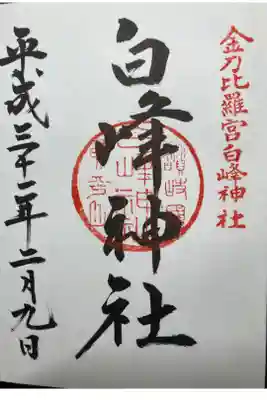 金刀比羅宮白峰神社
白峰神社
平成三十一年二月九日